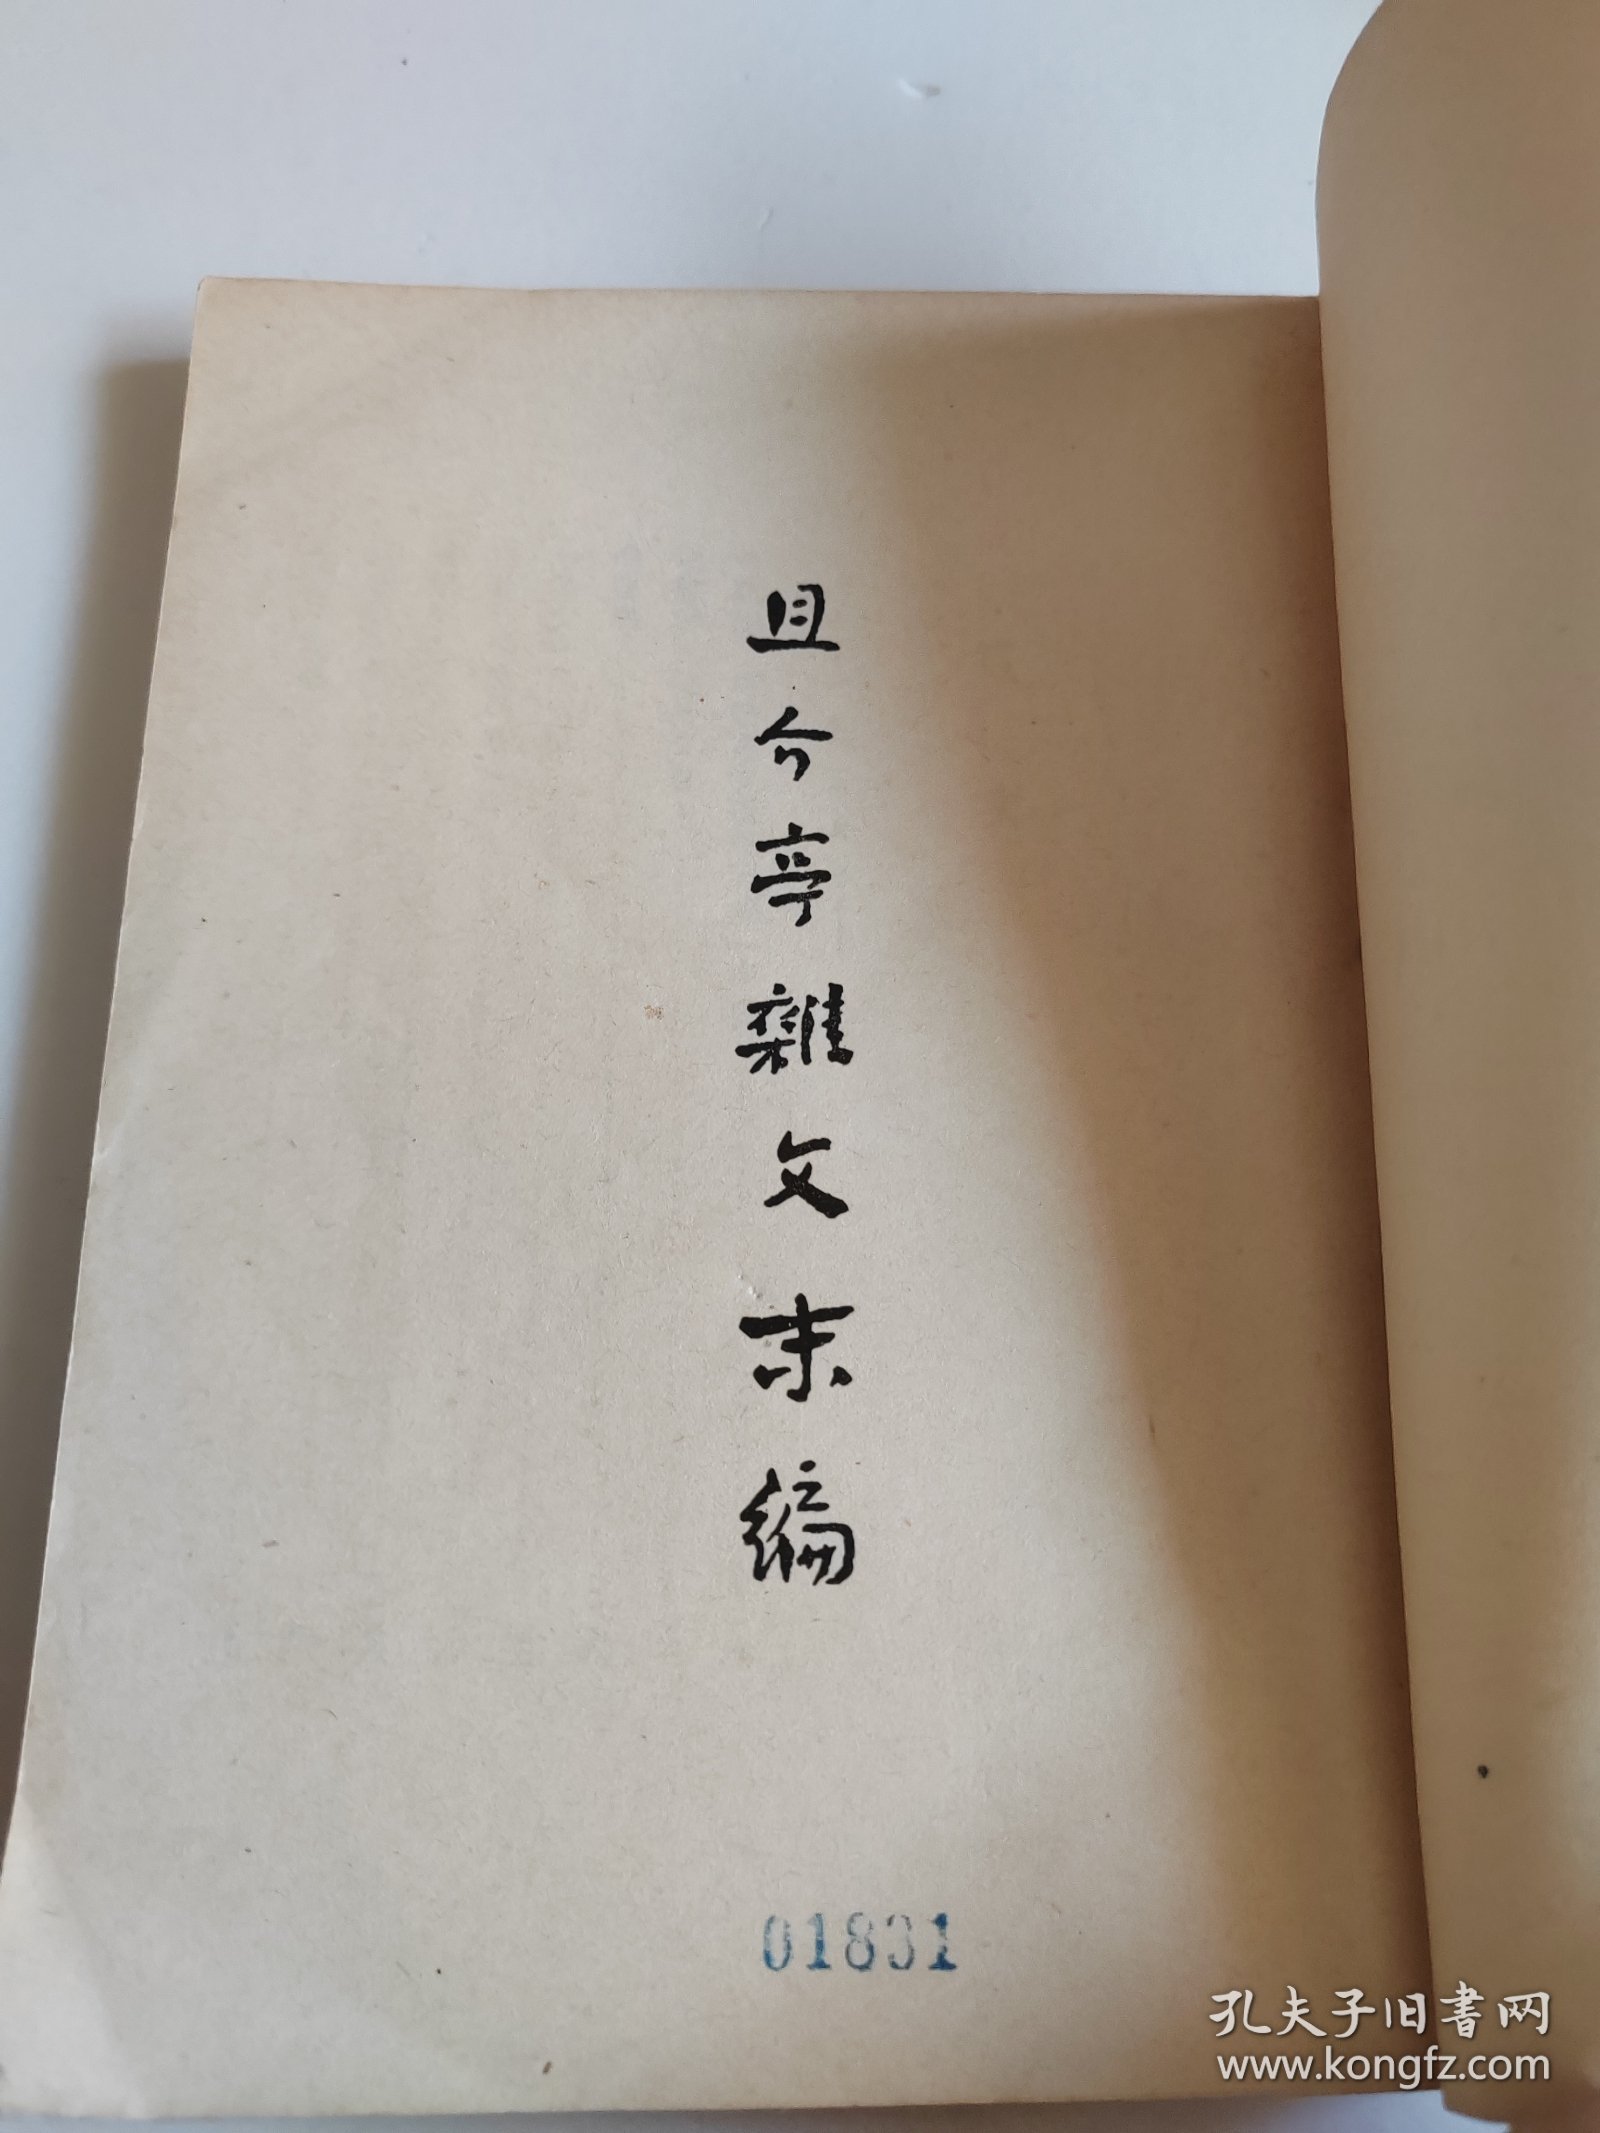 且介亭雜文末編
01831
孔夫子旧書网
www.kongfz.com